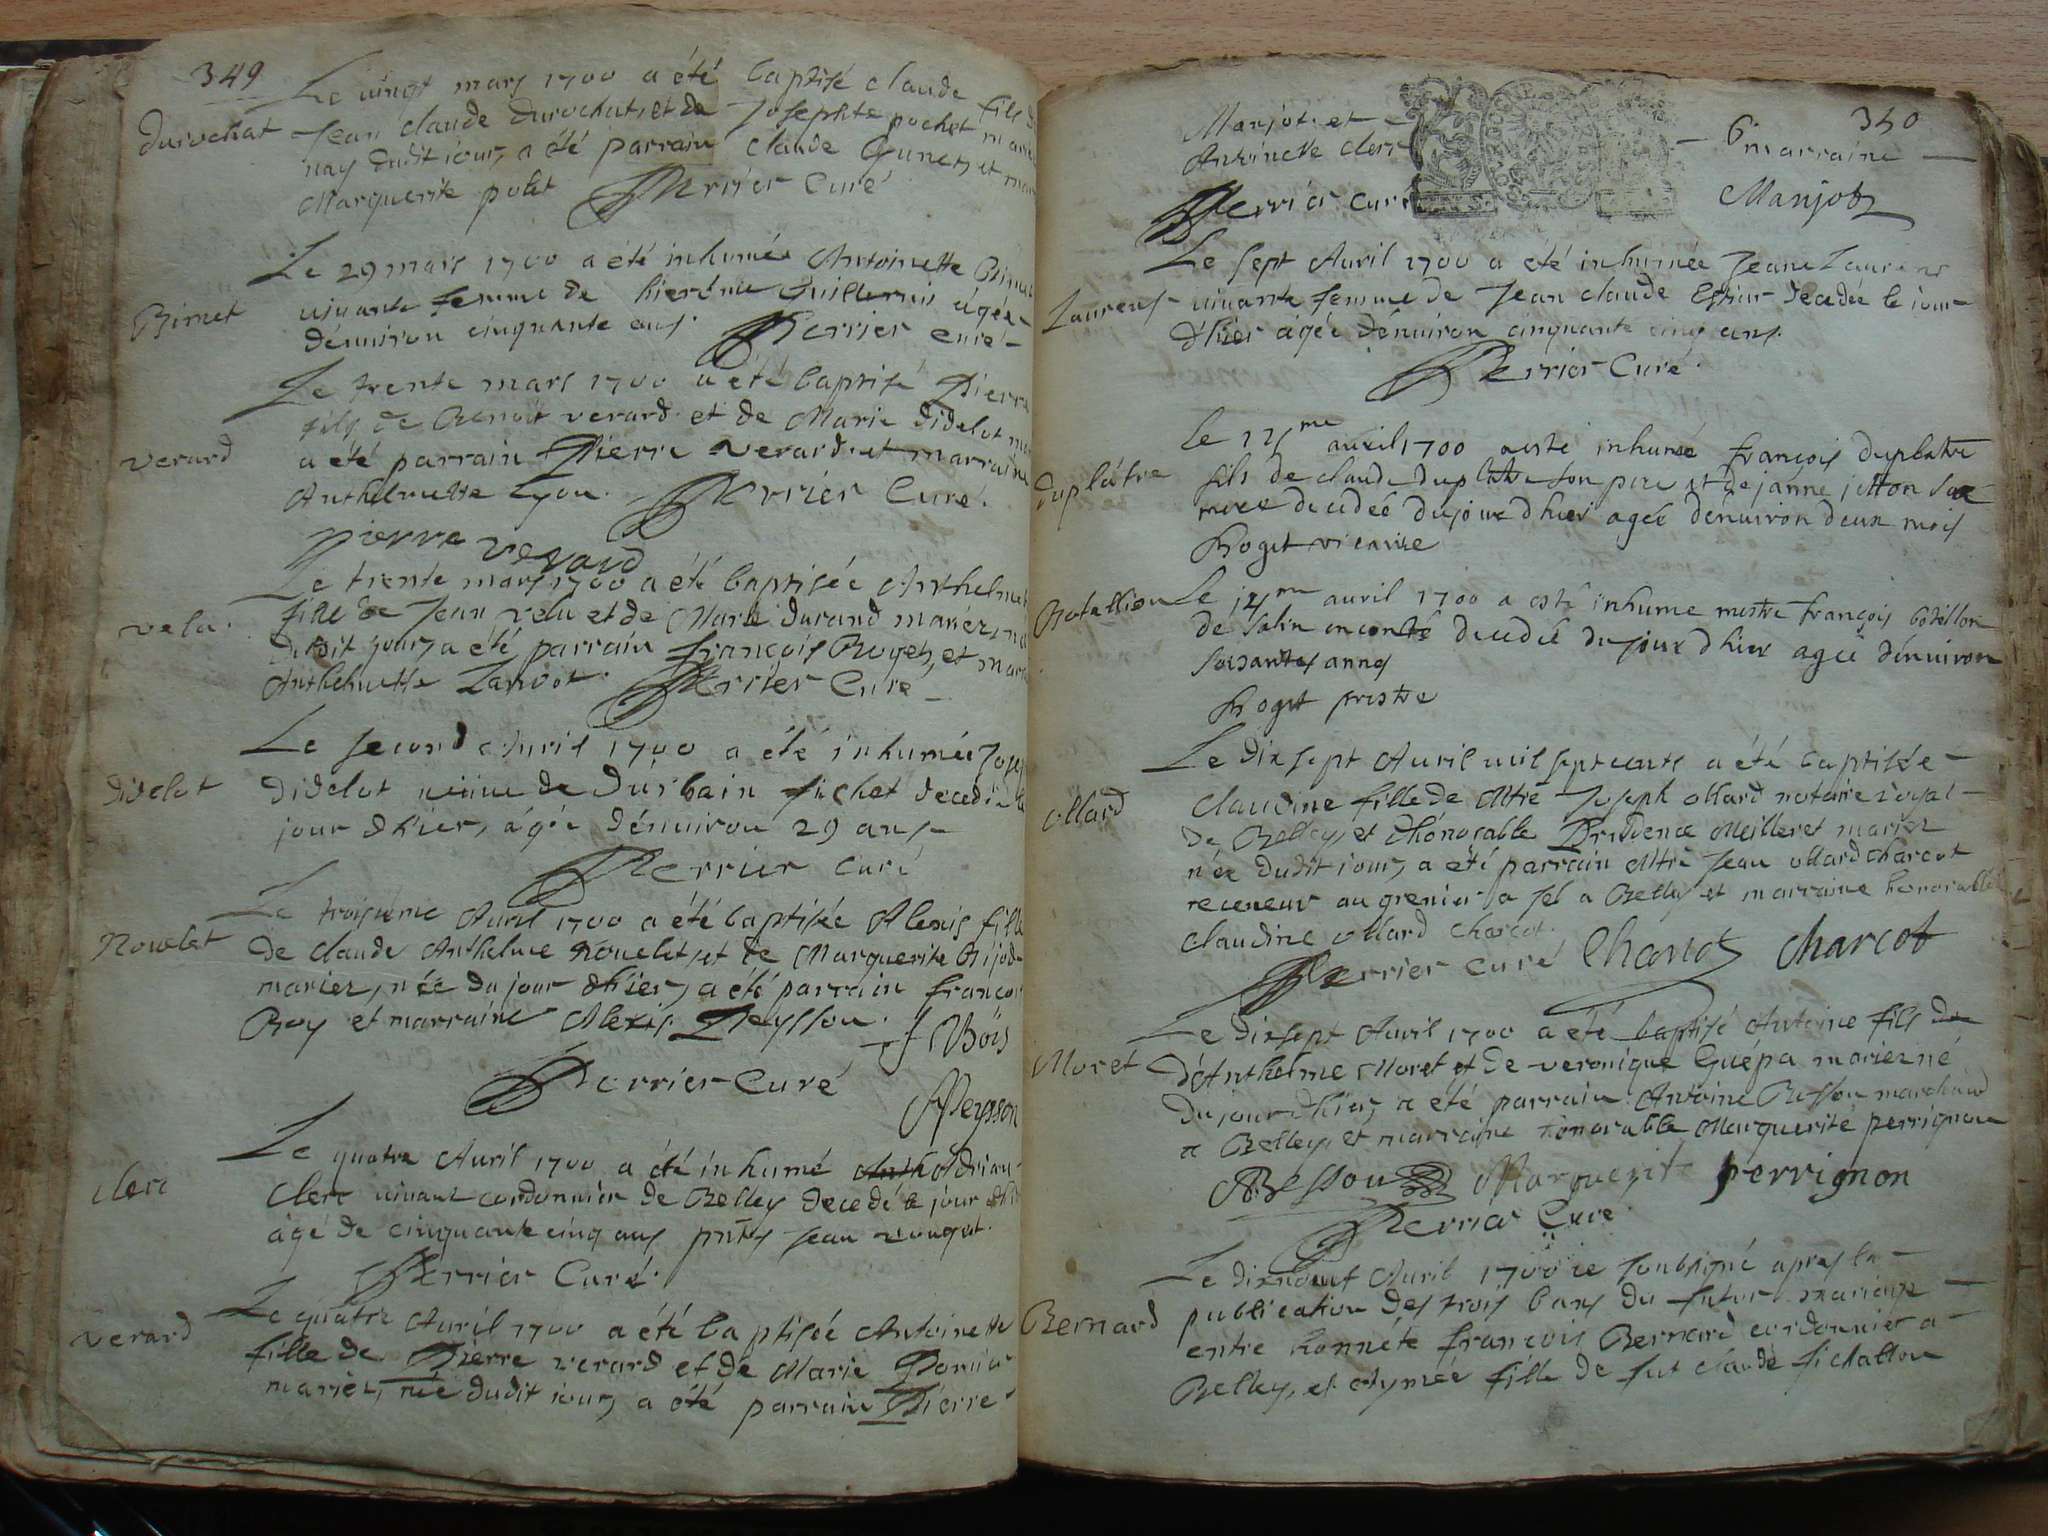 349
Le vingt mars 1700 a été baptisé claude fils de
Durochat Jean claude Durochat, et de Josephte pochet
nay dudit jour, a été parrain claude et
Marguerite polet Perrier Curé
Le 29 mars 1700 a été inhumée Antoinette
Bimet vivante femme de hierome Guillermin agée
d'environ cinquante ans. Perrier curé
Le trente mars 1700 a été baptisé Pierre
fils de Benoit verard et de Marie didelot
verard a été parrain Pierre verard et marraine
Anthelmette Lyon. Perrier Curé.
pierre verard
Le trente mars 1700 a été baptisée Anthelmet
velu. fille de Jean velu et de Marie durand mariez,
dudit jour, a été parrain françois Roget, et
Anthelmette Perrier Curé
Le second Avril 1700 a été inhumée
didelot didelot veuve de Durbain fichet decedée
jour d'hier, agée d'environ 29 ans
Perrier curé
Le troisieme Avril 1700 a été baptisée Alexis fille
Nouelet De claude Anthelme Nouelet, et de Marguerite
mariez, née du jour d'hier, a été parrain françois
Roy et marraine Alexis Peysson.
Perrier Curé
Peysson
Le quatre Avril 1700 a été inhumé
clerc Clerc vivant cordonnier de Belley decedé le jour
agé de cinquante cinq ans Jean
Perrier Curé.
Le quatre Avril 1700 a été baptisée Antoinette
verard fille de Pierre verard et de Marie
mariez, née dudit jour, a été parrain Pierre
350
Manjot et 6 marraine
Antoinette clerc
Perrier curé Manjot
Le sept Avril 1700 a été inhumée Jeane Laurens
Laurens vivante femme de Jean claude decedée le jour
d'hier agée d'environ cinquante cinq ans.
Perrier Curé.
Le auril 1700 a esté inhumé françois duplattre
duplâtre fils de claude duplattre son pere et de janne jetton sa
mere decedéé du jour d hier agéé denuiron deux mois
Roget vicaire
Le 14me auril 1700 a esté inhume mestre françois botellon
de salin en conté decedéé du jour d hier agéé denuiron
soisantes annes
Roget prestre
Le dixsept Avril mil sept cents a été baptisée
ollard claudine fille de Mtre Joseph ollard notaire royal
de Belley, et d'honorable Prudence Meilleret mariez
née dudit jour, a été parrain Mtre Jean ollard charcot
receveur au grenier a sel a Belley et marraine honorable
claudine ollard charcot.
Perrier curé Charcot charcot
Le dixsept Avril 1700 a été baptisé Antoine fils de
Moret d'Anthelme Moret et de veronique Guépa mariez né
du jour d'hier, a été parrain Antoine Besson marchand
a Belley, et marraine honorable Marguerite perrignon
ABesson Marguerite perrignon
Perrier Curé
Le dixneuf Avril 1700 ie soubsigné apres la
Bernard publication des trois bans du futur mariage
entre honnéte françois Bernard cordonnier a
Belley, et Aymée fille de feu claude fichallon